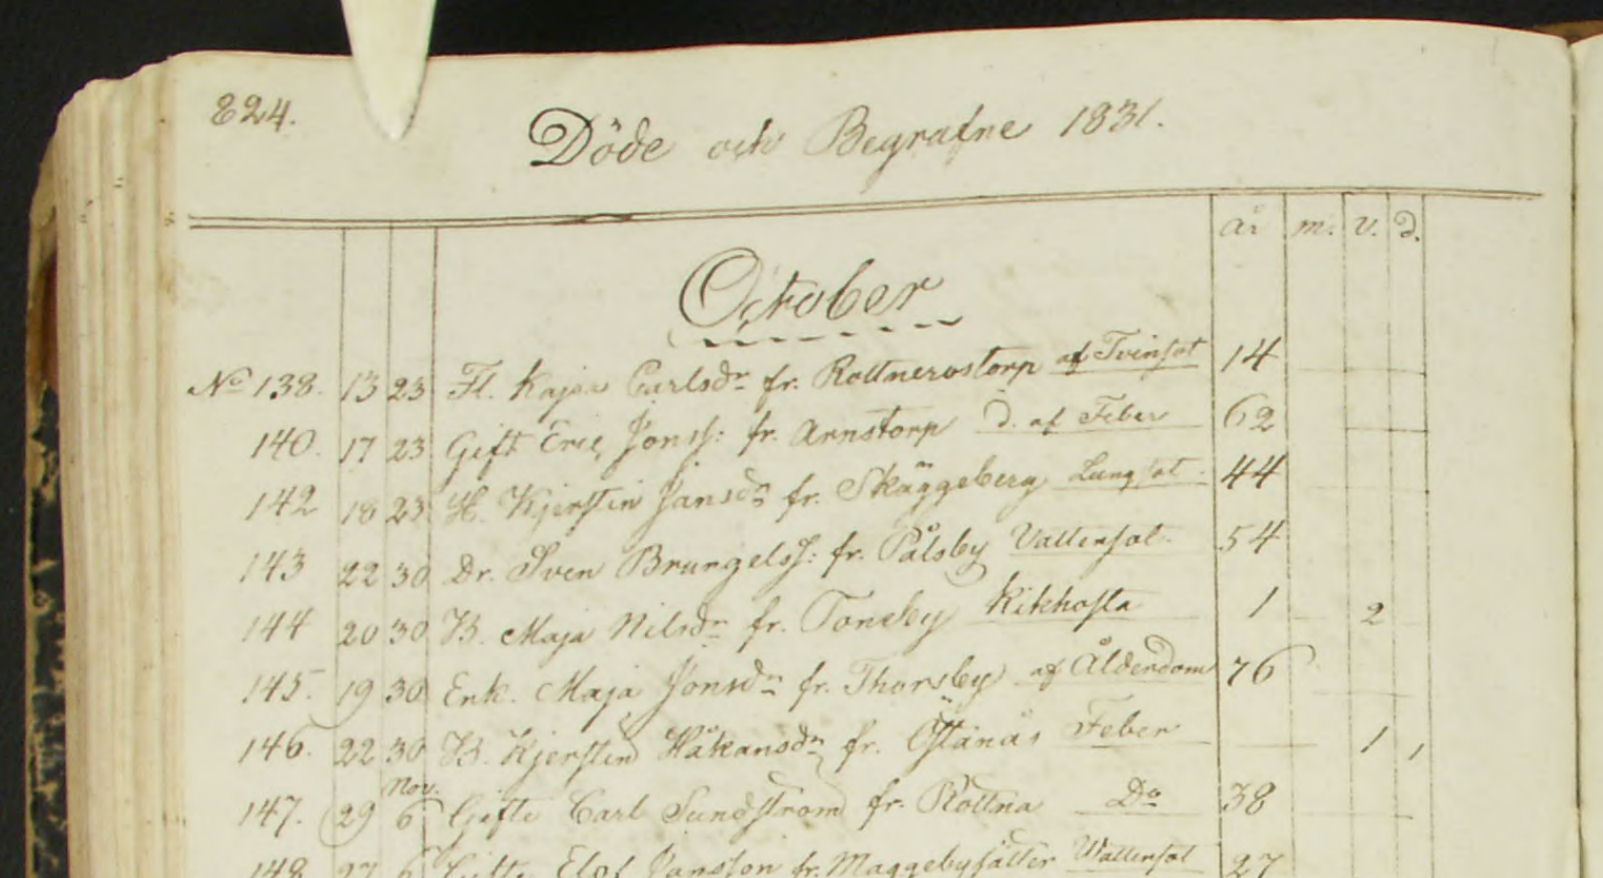 824.
Döde och Begrafne 1831.
år m: v. d.
October
No 138. 13 23 Fl. Kajsa Carlsdr fr. Rottnerostorp af Tvinsot 14
140. 17 23 Gift Eric Jonss: fr. Arnstorp d. af Feber 62
142 18 23 H. Kjerstin Jansdr fr. Skäggeberg Lungsot 44
143 22 30 Dr. Sven Brungelss: fr. Pålsby Vattensot 54
144 20 30 B. Maja Nilsdr fr. Tonsby Kikhosta 1 2
145. 19 30 Enk. Maja Jonsdr fr. Thorsby af Ålderdom 76
146. 22 30 B. Kjerstin Håkansdr fr. Östanås Feber 1 1
Nov.
147. 29 6 Gifte Carl Sundström fr. Rottna Do 38
148 27 6 Gifte Elof Jansson fr. Maggebysätter Wattensot 27